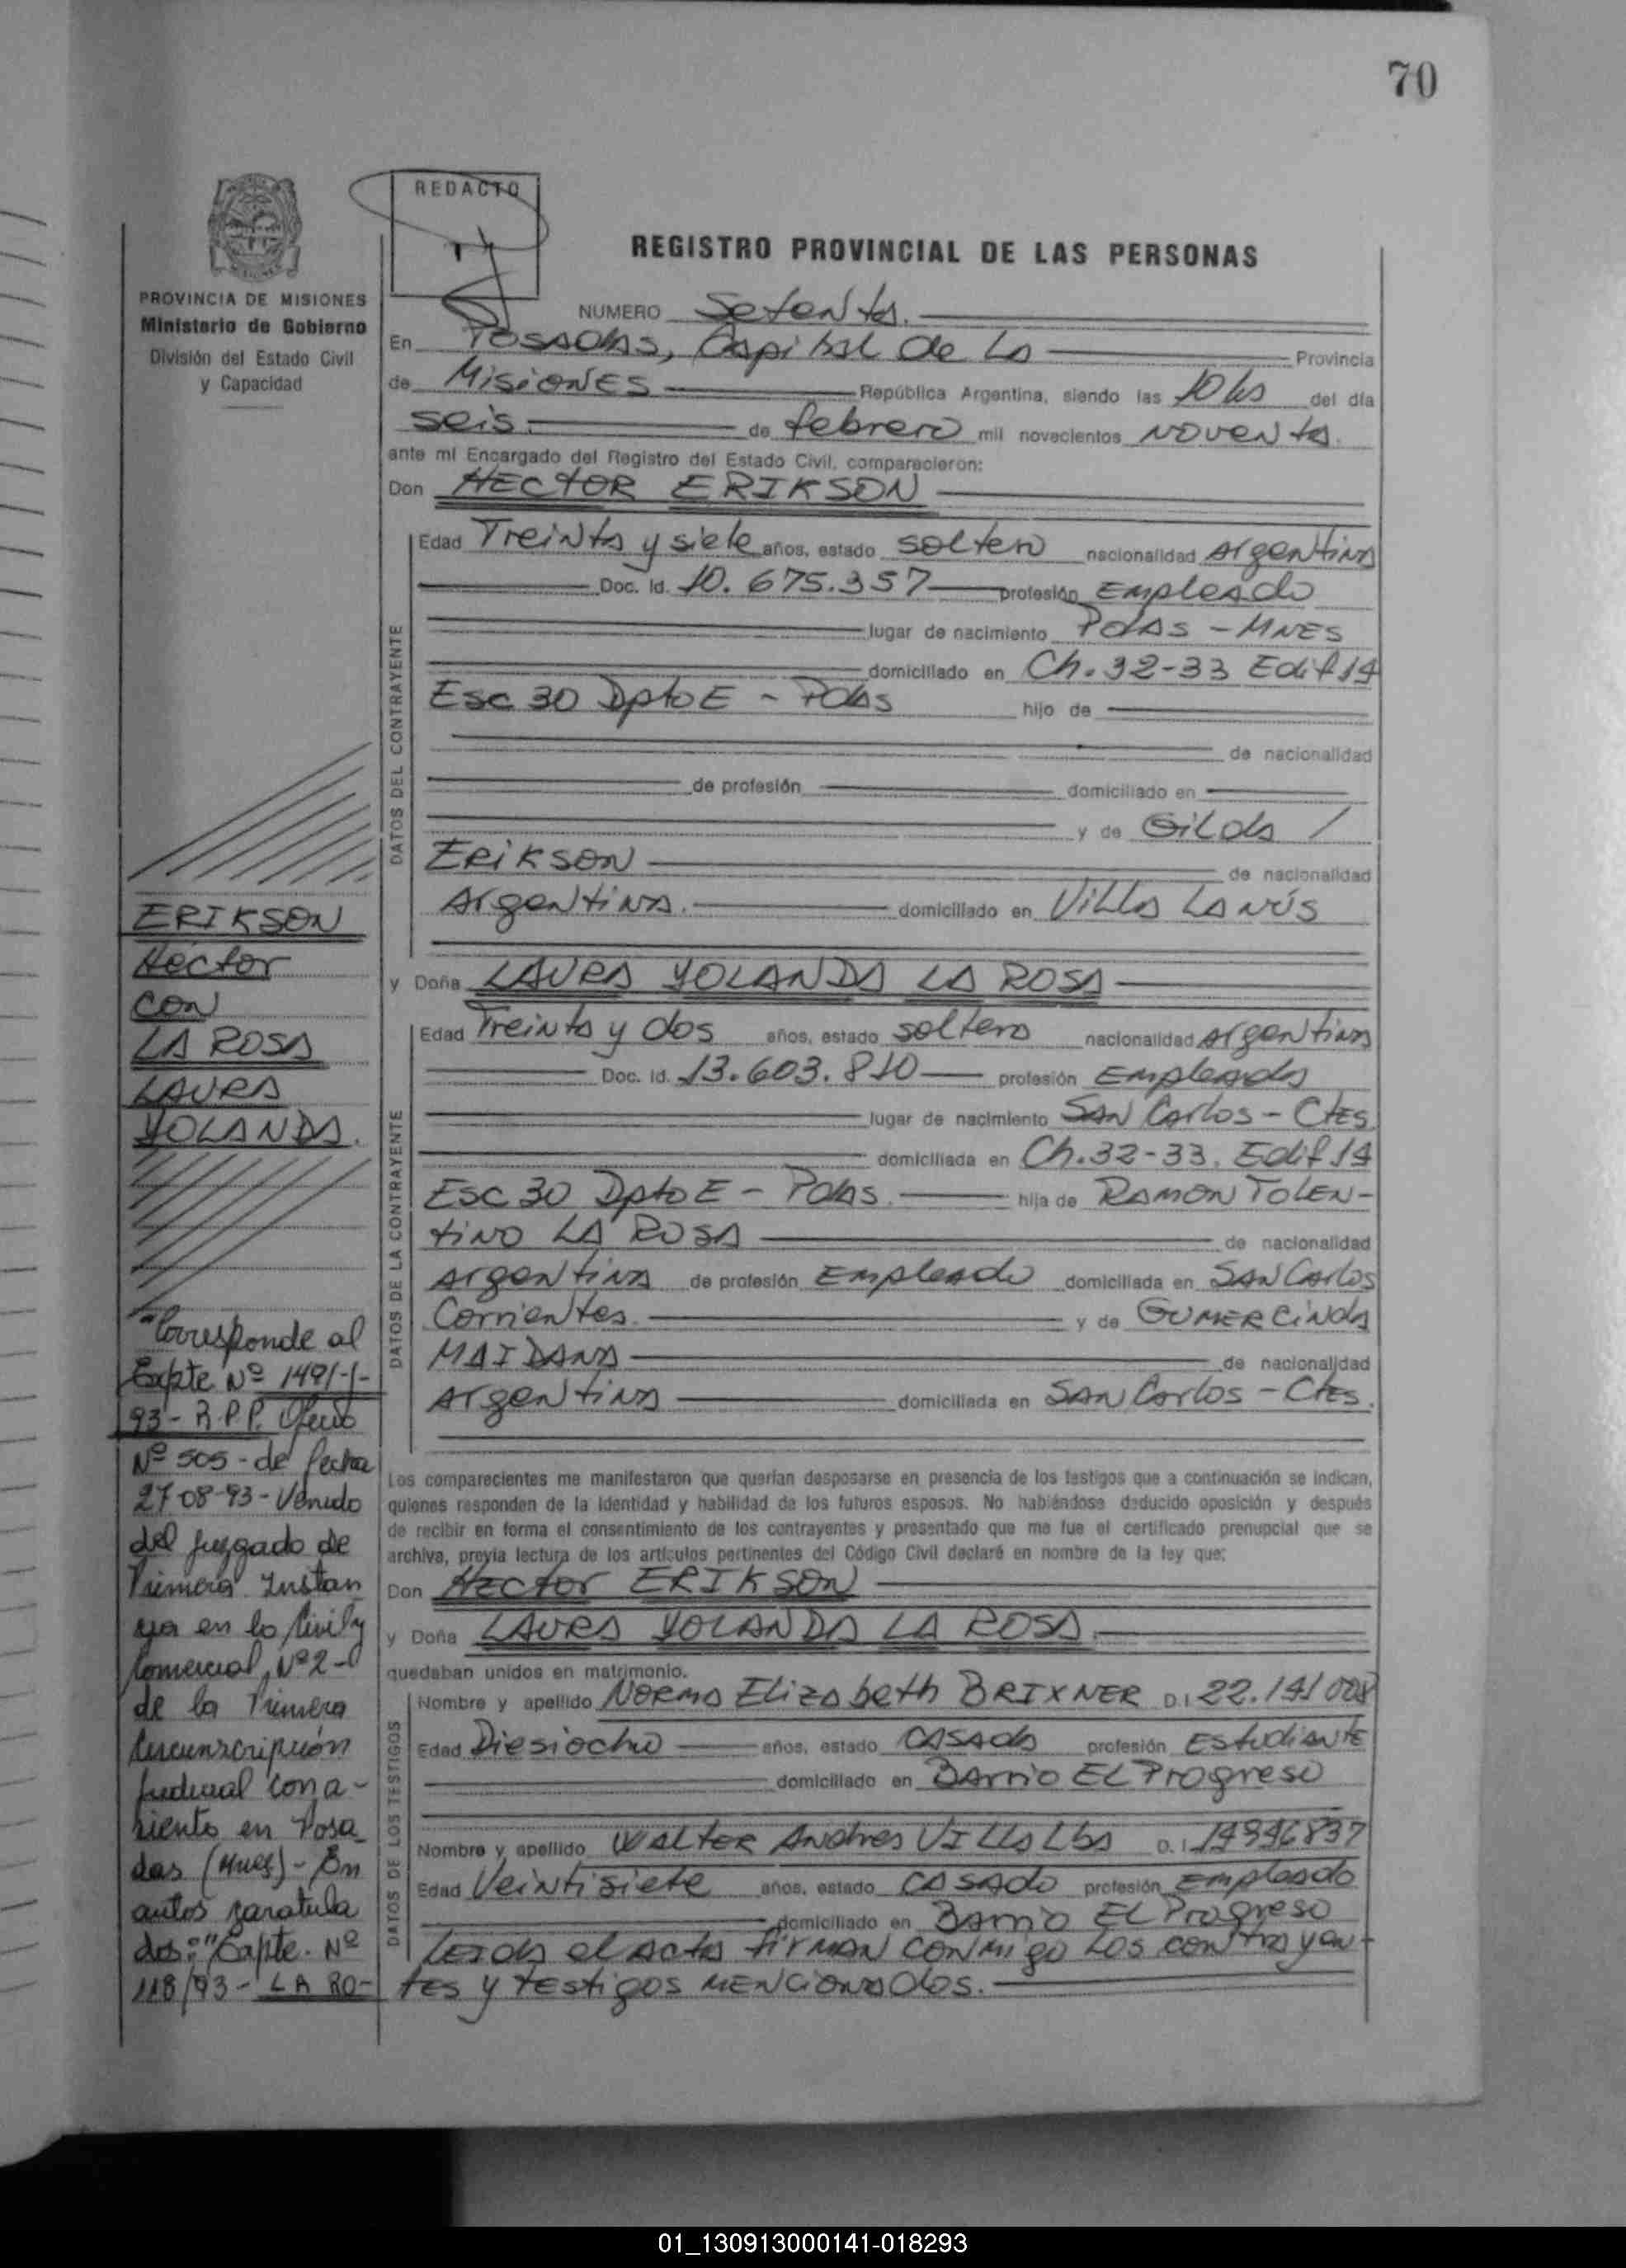 70
REDACTO
REGISTRO PROVINCIAL DE LAS PERSONAS
PROVINCIA DE MISIONES
Ministerio de Gobierno
División del Estado Civil
y Capacidad
NUMERO Setenta.
En Posadas, Capital de La Provincia
de Misiones República Argentina, siendo las 10 hs del día
seis de febrero mil novecientos noventa.
ante mí Encargado del Registro del Estado Civil, comparecieron:
Don HECTOR ERIKSON
DATOS DEL CONTRAYENTE
Edad Treinta y siete años, estado soltero nacionalidad Argentina
Doc. Id. 10.675.357 profesión Empleado
lugar de nacimiento Pdas - Mnes
domiciliado en Ch. 32-33 Edif 14
Esc 30 Dpto E - Pdas hijo de
de nacionalidad
de profesión domiciliado en
y de Gilda /
Erikson de nacionalidad
Argentina. domiciliado en Villa Lanús
y Doña LAURA YOLANDA LA ROSA
DATOS DE LA CONTRAYENTE
Edad Treinta y dos años, estado soltera nacionalidad Argentina
Doc. Id. 13.603.810 profesión Empleada
lugar de nacimiento San Carlos - Ctes
domiciliada en Ch. 32-33. Edif 14
Esc 30 Dpto E - Pdas. hija de RAMON TOLEN-
tino LA ROSA de nacionalidad
Argentina de profesión Empleado domiciliada en San Carlos
Corrientes. y de GUMERCINDA
MAIDANA de nacionalidad
Argentina domiciliada en San Carlos - Ctes.
Los comparecientes me manifestaron que querían desposarse en presencia de los testigos que a continuación se indican,
quienes responden de la identidad y habilidad de los futuros esposos. No habiéndose deducido oposición y después
de recibir en forma el consentimiento de los contrayentes y presentado que me fue el certificado prenupcial que se
archiva, previa lectura de los artículos pertinentes del Código Civil declaré en nombre de la ley que:
Don Hector ERIKSON
y Doña LAURA YOLANDA LA ROSA
quedaban unidos en matrimonio.
DATOS DE LOS TESTIGOS
Nombre y apellido Norma Elizabeth BRIXNER D.I 22.141008
Edad Diesiocho años, estado casada profesión Estudiante
domiciliado en Barrio El Progreso
Nombre y apellido Walter Andres Villalba D.I 14946837
Edad Veintisiete años, estado casado profesión Empleado
domiciliado en Barrio El Progreso
Leida el acta firman conmigo los contrayen-
tes y testigos mencionados.
ERIKSON
Hector
con
LA ROSA
LAURA
YOLANDA.
"Corresponde al
Expte Nº 1491-/-
93- R.P.P. Oficio
Nº 505 - de fecha
27-08-93 - Venido
del Juzgado de
Primera Instan
cia en lo Civil y
Comercial Nº 2-
de la Primera
Circunscripción
Judicial con a-
siento en Posa
das (Mnes) - En
autos caratula
dos: "Expte. Nº
118/93 - LA RO-
01_130913000141-018293